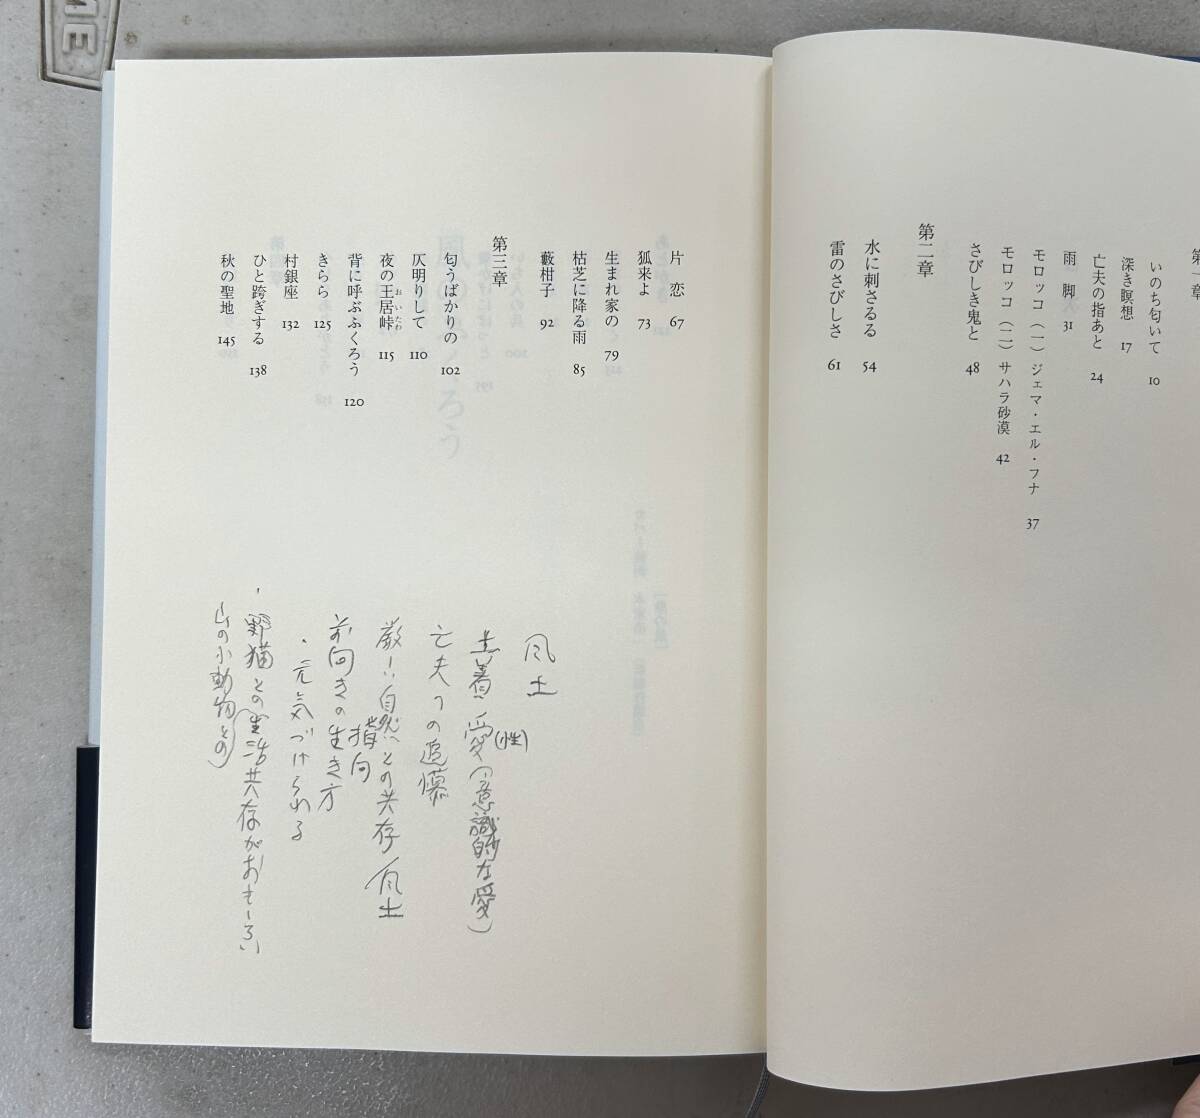 第一章
いのち匂いて 10
深き瞑想 17
亡夫の指あと 24
雨脚 31
モロッコ（一）ジェマ・エル・フナ 37
モロッコ（二）サハラ砂漠 42
さびしき鬼と 48
第二章
水に刺さるる 54
雷のさびしさ 61
片恋 67
狐来よ 73
生まれ家の 79
枯芝に降る雨 85
藪柑子 92
第三章
匂うばかりの 102
仄明りして 110
夜の王居峠 115
おいたわ
背に呼ぶふくろう 120
きらら 125
村銀座 132
ひと跨ぎする 138
秋の聖地 145
風土
土着 愛（意識的な愛）
（性）
亡夫への追慕
厳しい自然との共存 風土
指向
前向きの生き方
・元気づけられる
・野猫との生活共存がおもしろい
（山の小動物との）
ME